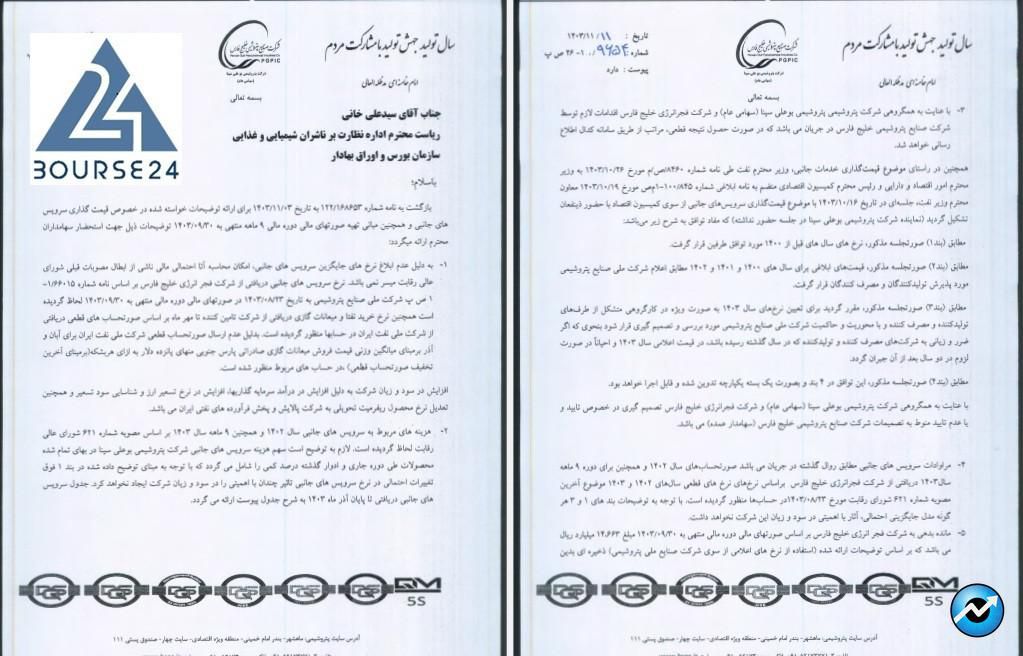 سال تولید جهش تولید با مشارکت مردم
امام خامنه‌ای مدظله العالی
شرکت صنایع پتروشیمی خلیج فارس
PGPIC
شرکت پتروشیمی بوعلی سینا
(سهامی عام)
بسمه تعالی
BOURSE24
جناب آقای سیدعلی خانی
ریاست محترم اداره نظارت بر ناشران شیمیایی و غذایی
سازمان بورس و اوراق بهادار
باسلام؛
بازگشت به نامه شماره ۱۲۲/۱۶۸۶۵۳ به تاریخ ۱۴۰۳/۱۱/۰۳ برای ارائه توضیحات خواسته شده در خصوص قیمت گذاری سرویس
های جانبی و همچنین مبانی تهیه صورتهای مالی دوره مالی ۹ ماهه منتهی به ۱۴۰۳/۰۹/۳۰ توضیحات ذیل جهت استحضار سهامداران
محترم ارائه میگردد:
۱- به دلیل عدم ابلاغ نرخ های جایگزین سرویس های جانبی، امکان محاسبه آثا احتمالی مالی ناشی از ابطال مصوبات قبلی شورای
عالی رقابت میسر نمی باشد. نرخ سرویس های جانبی دریافتی از شرکت فجر انرژی خلیج فارس بر اساس نامه شماره ۱/۶۶۰۱۵-
۱ ص پ شرکت ملی صنایع پتروشیمی به تاریخ ۱۴۰۳/۰۸/۲۳ در صورتهای مالی دوره مالی منتهی به ۱۴۰۳/۰۹/۳۰ لحاظ گردیده
است همچنین نرخ خرید نفتا و میعانات گازی دریافتی از شرکت تامین کننده تا مهر ماه بر اساس صورتحساب های قطعی دریافتی
از شرکت ملی نفت ایران در حسابها منظور گردیده است. بدلیل عدم ارسال صورتحساب قطعی شرکت ملی نفت ایران برای آبان و
آذر برمبنای میانگین وزنی قیمت فروش میعانات گازی صادراتی پارس جنوبی منهای پانزده دلار به ازای هربشکه(برمبنای آخرین
تخفیف صورتحساب قطعی) ،در حساب های مربوط منظور شده است.
افزایش در سود و زیان شرکت به دلیل افزایش در درآمد سرمایه گذاریها، افزایش در نرخ تسعیر ارز و شناسایی سود تسعیر و همچنین
تعدیل نرخ محصول ریفرمیت تحویلی به شرکت پالایش و پخش فرآورده های نفتی ایران می باشد.
۲- هزینه های مربوط به سرویس های جانبی سال ۱۴۰۲ و همچنین ۹ ماهه سال ۱۴۰۳ بر اساس مصوبه شماره ۶۲۱ شورای عالی
رقابت لحاظ گردیده است. لازم به توضیح است سهم هزینه سرویس های جانبی شرکت پتروشیمی بوعلی سینا در بهای تمام شده
محصولات طی دوره جاری و ادوار گذشته درصد کمی را شامل می گردد که با توجه به مبنای توضیح داده شده در بند ۱ فوق
تغییرات احتمالی در نرخ سرویس های جانبی تاثیر چندان با اهمیتی را در سود و زیان شرکت ایجاد نخواهد کرد. جدول سرویس
های جانبی دریافتی تا پایان آذر ماه ۱۴۰۳ به شرح جدول پیوست ارائه می گردد.
5S
آدرس سایت پتروشیمی: ماهشهر- بندر امام خمینی- منطقه ویژه اقتصادی- سایت چهار- صندوق پستی ۱۱۱
سال تولید جهش تولید با مشارکت مردم
امام خامنه‌ای مدظله العالی
شرکت صنایع پتروشیمی خلیج فارس
PGPIC
شرکت پتروشیمی بوعلی سینا
(سهامی عام)
بسمه تعالی
تاریخ : ۱۴۰۳/۱۱/۱۱
شماره : ۹۶۵۴
پیوست : دارد
۳- با عنایت به همگروهی شرکت پتروشیمی پتروشیمی بوعلی سینا (سهامی عام) و شرکت فجرانرژی خلیج فارس اقدامات لازم توسط
شرکت صنایع پتروشیمی خلیج فارس در جریان می باشد که در صورت حصول نتیجه قطعی، مراتب از طریق سامانه کدال اطلاع
رسانی خواهد شد.
همچنین در راستای موضوع قیمت‌گذاری خدمات جانبی، وزیر محترم نفت طی نامه شماره ۸۴۶۰/ص/م مورخ ۱۴۰۳/۱۰/۲۶ به وزیر
محترم امور اقتصاد و دارایی و رئیس محترم کمیسیون اقتصادی منضم به نامه ابلاغی شماره ۱۰۰/۸۴۵-۱م‌ص مورخ ۱۴۰۳/۱۰/۱۹ معاون
محترم وزیر نفت، جلسه‌ای در تاریخ ۱۴۰۳/۱۰/۱۶ با موضوع قیمت‌گذاری سرویس‌های جانبی از سوی کمیسیون اقتصاد با حضور ذینفعان
تشکیل گردید (نماینده شرکت پتروشیمی بوعلی سینا در جلسه حضور نداشته) که مفاد توافق به شرح زیر می‌باشد:
مطابق (بند۱) صورتجلسه مذکور، نرخ های سال های قبل از ۱۴۰۰ مورد توافق طرفین قرار گرفت.
مطابق (بند۲) صورتجلسه مذکور، قیمت‌های ابلاغی برای سال های ۱۴۰۰ و ۱۴۰۱ و ۱۴۰۲ مطابق اعلام شرکت ملی صنایع پتروشیمی
مورد پذیرش تولیدکنندگان و مصرف کنندگان قرار گرفت.
مطابق (بند۳) صورتجلسه مذکور، مقرر گردید برای تعیین نرخ‌های سال ۱۴۰۳ به صورت ویژه در کارگروهی متشکل از طرف‌های
تولیدکننده و مصرف کننده و با محوریت و حاکمیت شرکت ملی صنایع پتروشیمی مورد بررسی و تصمیم گیری قرار شود بنحوی که اگر
ضرر و زیانی به شرکت‌های مصرف کننده و تولیدکننده که در سال گذشته رسیده باشد، در قیمت اعلامی سال ۱۴۰۳ و احیاناً در صورت
لزوم در دو سال بعد از آن جبران گردد.
مطابق (بند۴) صورتجلسه مذکور، این توافق در ۴ بند و بصورت یک بسته یکپارچه تدوین شده و قابل اجرا خواهد بود.
با عنایت به همگروهی شرکت پتروشیمی بوعلی سینا (سهامی عام) و شرکت فجرانرژی خلیج فارس تصمیم گیری در خصوص تایید و
یا عدم تایید منوط به تصمیمات شرکت صنایع پتروشیمی خلیج فارس (سهامدار عمده) می باشد.
۴- مراودات سرویس های جانبی مطابق روال گذشته در جریان می باشد صورتحساب‌های سال ۱۴۰۲ و همچنین برای دوره ۹ ماهه
سال۱۴۰۳ دریافتی از شرکت فجرانرژی خلیج فارس براساس نرخ‌های نرخ های قطعی سال‌های ۱۴۰۲ و ۱۴۰۳ موضوع آخرین
مصوبه شماره ۶۲۱ شورای رقابت مورخ ۱۴۰۳/۰۸/۲۳در حساب‌ها منظور گردیده است. با توجه به توضیحات بند های ۱ و ۳ هر
گونه مدل جایگزینی احتمالی، آثار با اهمیتی در سود و زیان این شرکت نخواهد داشت.
۵- مانده بدهی به شرکت فجر انرژی خلیج فارس بر اساس صورتهای مالی دوره مالی منتهی به ۱۴۰۳/۰۹/۳۰ مبلغ ۱۴,۶۶۳ میلیارد ریال
می باشد که بر اساس توضیحات ارائه شده (استفاده از نرخ های اعلامی از سوی شرکت صنایع ملی پتروشیمی) ذخیره ای بدین
5S
آدرس سایت پتروشیمی: ماهشهر- بندر امام خمینی- منطقه ویژه اقتصادی- سایت چهار- صندوق پستی ۱۱۱